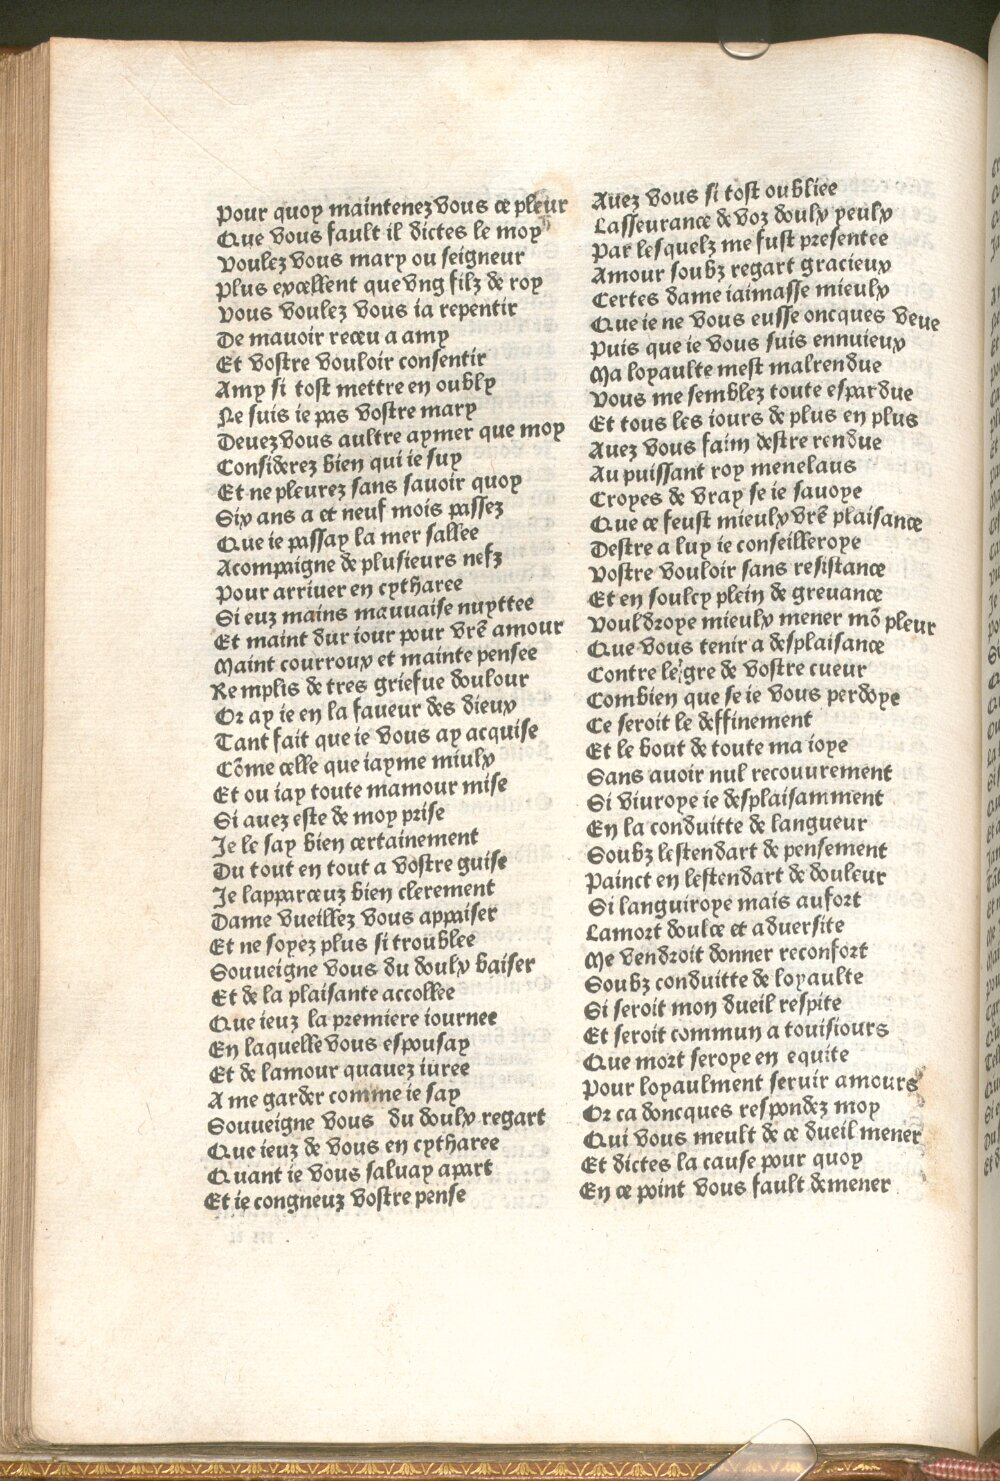 Pour quoy maintenez vous ce pleur
Que vous fault il dictes le moy
Voulez vous mary ou seigneur
Plus excellent que vng filz de roy
Vous voulez vous ia repentir
De mauoir receu a amy
Et vostre vouloir consentir
Amy si tost mettre en oubly
Ne suis ie pas vostre mary
Deuez vous aultre aymer que moy
Considerez bien qui ie suy
Et ne pleurez sans sauoir quoy
Six ans a et neuf mois passez
Que ie passay la mer sallee
Acompaigne de plusieurs nefz
Pour arriuer en cytharee
Si euz mains mauuaise nuyttee
Et maint dur iour pour vrē amour
Maint courroux et mainte pensee
Remplis de tres griefue doulour
Or ay ie en la faueur des dieux
Tant fait que ie vous ay acquise
Cōme celle que iayme miulx
Et ou iay toute mamour mise
Si auez este de moy prise
Je le say bien certainement
Du tout en tout a vostre guise
Je lapparceuz bien clerement
Dame vueillez vous appaiser
Et ne soyez plus si troublee
Souueigne vous du doulx baiser
Et de la plaisante accollee
Que ieuz la premiere iournee
En laquelle vous espousay
Et de lamour quauez iuree
A me garder comme ie say
Souueigne vous du doulx regart
Que ieuz de vous en cytharee
Quant ie vous saluay apart
Et ie congneuz vostre pense
Auez vous si tost oubliee
Lasseurance de voz doulx yeulx
Par lesquelz me fust presentee
Amour soubz regart gracieux
Certes dame iaimasse mieulx
Que ie ne vous eusse oncques veue
Puis que ie vous suis ennuieux
Ma loyaulte mest malrendue
Vous me semblez toute espardue
Et tous les iours de plus en plus
Auez vous faim destre rendue
Au puissant roy menelaus
Croyes de vray se ie sauoye
Que ce feust mieulx vrē plaisance
Destre a luy ie conseilleroye
Vostre vouloir sans resistance
Et en soulcy plein de greuance
Vouldroye mieulx mener mō pleur
Que vous tenir a desplaisance
Contre le gre de vostre cueur
Combien que se ie vous perdoye
Ce seroit le deffinement
Et le bout de toute ma ioye
Sans auoir nul recouurement
Si viuroye ie desplaisamment
En la conduitte de langueur
Soubz lestendart de pensement
Painct en lestendart de douleur
Si languiroye mais aufort
Lamort doulce et aduersite
Me vendroit donner reconfort
Soubz conduitte de loyaulte
Si seroit mon dueil respite
Et seroit commun a touisiours
Que mort seroye en equite
Pour loyaulment seruir amours
Or ca doncques respondez moy
Qui vous meult de ce dueil mener
Et dictes la cause pour quoy
En ce point vous fault demener